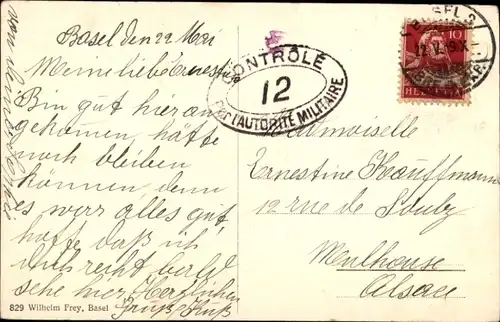 Basel den 22 Mai
Meine liebe Ernestine
Bin gut hier an
gekommen, hätte
noch bleiben
können denn
es war alles gut
hoffe daß ich
dich recht bald
sehe hier, Herzlichen
Gruß Kuß
829 Wilhelm Frey, Basel
CONTRÔLÉ
12
par l'AUTORITÉ MILITAIRE
BASEL 2
10
HELVETIA
Mademoiselle
Ernestine Kauffmann
12 rue de
Mulhouse
Alsace